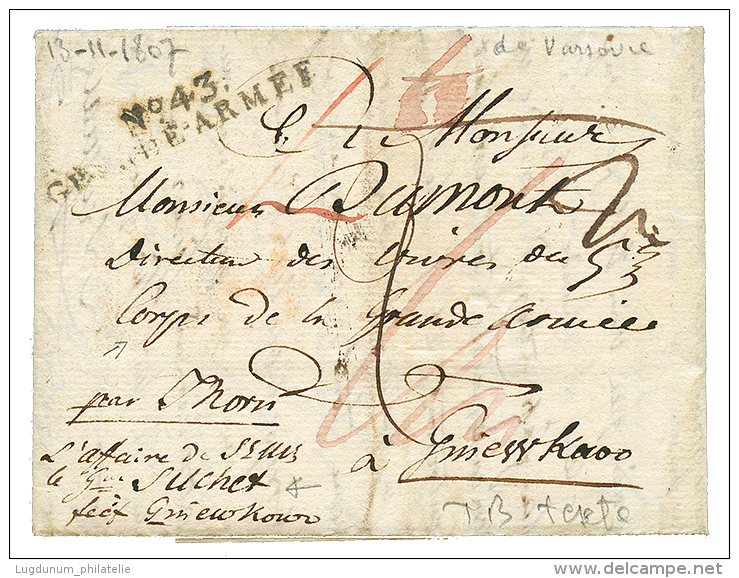 13-11-1807
de Varsovie
No. 43.
GRANDE-ARMÉE
A Monsieur
Monsieur Dumont
Directeur des vivres du 5e
Corps de la Grande armée
par Thorn
à Gniewkowo
L'affaire de
le Gnl SUCHET
Gniewkowo
TB texte
Lugdunum_philatelie
delcampe.net